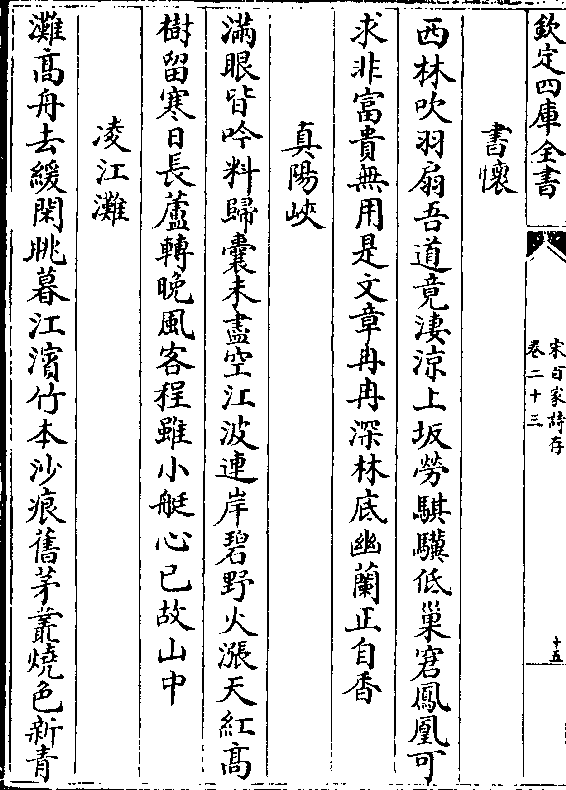 欽定四庫全書
宋百家詩存
卷二十三
十五
書懷
西林吹羽扇吾道竟淒涼上坂勞騏驥低巢窘鳳凰可
求非富貴無用是文章冉冉深林底幽蘭正自香
真陽峽
滿眼皆吟料歸囊未盡空江波連岸碧野火漲天紅高
樹留寒日長蘆轉晚風客程雖小艇心已故山中
凌江灘
灘高舟去緩閑眺暮江濱竹本沙痕舊茅叢燒色新青